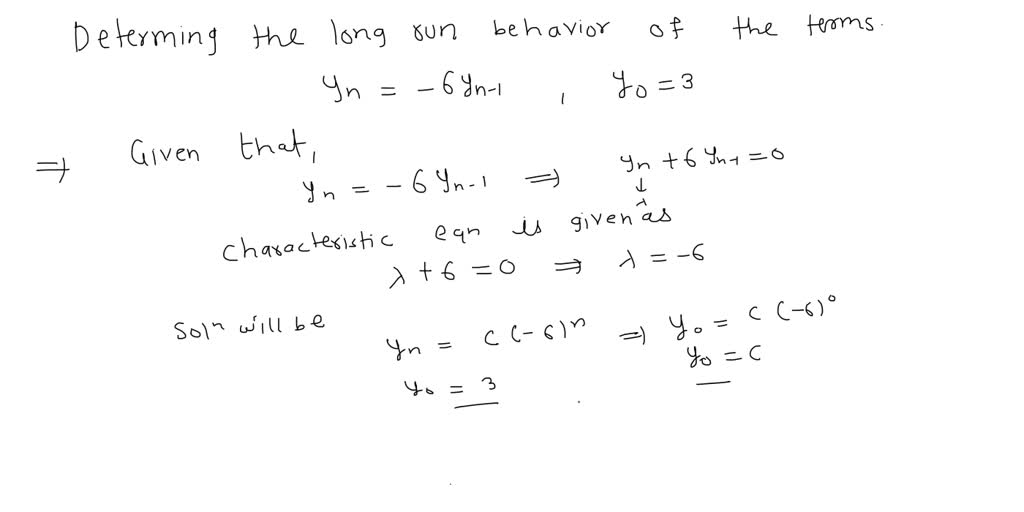 Determing the long run behavior of the terms.
yn = -6yn-1 , y0 = 3
⇒ Given that,
yn = -6yn-1 ⇒ yn + 6yn-1 = 0
↓
λ
Characteristic eqn is given as
λ + 6 = 0 ⇒ λ = -6
Solⁿ will be
yn = c(-6)ⁿ ⇒ y0 = c(-6)⁰
y0 = 3 y0 = c